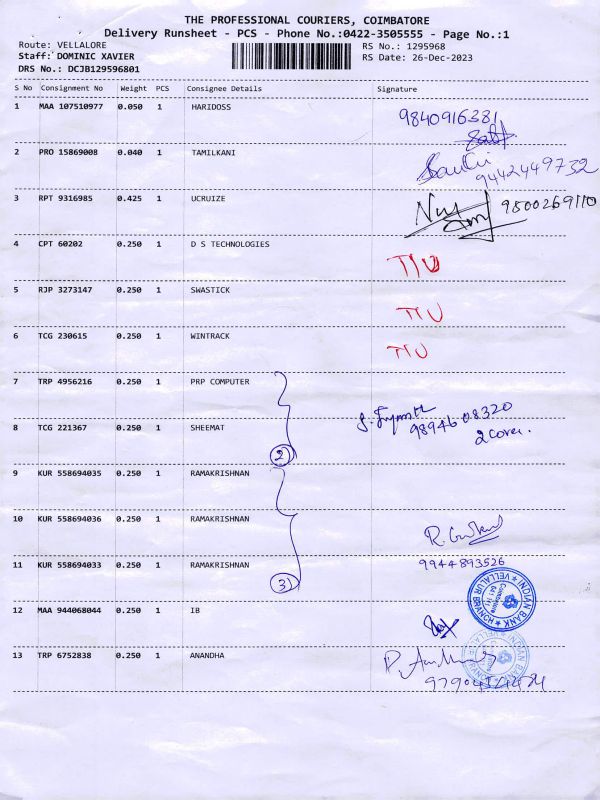 THE PROFESSIONAL COURIERS, COIMBATORE
Delivery Runsheet - PCS - Phone No.:0422-3505555 - Page No.:1
Route: VELLALORE
RS No.: 1295968
Staff: DOMINIC XAVIER
RS Date: 26-Dec-2023
DRS No.: DCJB129596801
S No Consignment No Weight PCS Consignee Details Signature
1 MAA 107510977 0.050 1 HARIDOSS
9840916381
2 PRO 15869008 0.040 1 TAMILKANI
9442449732
3 RPT 9316985 0.425 1 UCRUIZE
9500269110
4 CPT 60202 0.250 1 D S TECHNOLOGIES
5 RJP 3273147 0.250 1 SWASTICK
6 TCG 230615 0.250 1 WINTRACK
7 TRP 4956216 0.250 1 PRP COMPUTER
98946 08320
8 TCG 221367 0.250 1 SHEEMAT
2 cover.
2
9 KUR 558694035 0.250 1 RAMAKRISHNAN
10 KUR 558694036 0.250 1 RAMAKRISHNAN
11 KUR 558694033 0.250 1 RAMAKRISHNAN
9944893526
3
INDIAN BANK
VELLALUR BRANCH
12 MAA 944068044 0.250 1 IB
13 TRP 6752838 0.250 1 ANANDHA